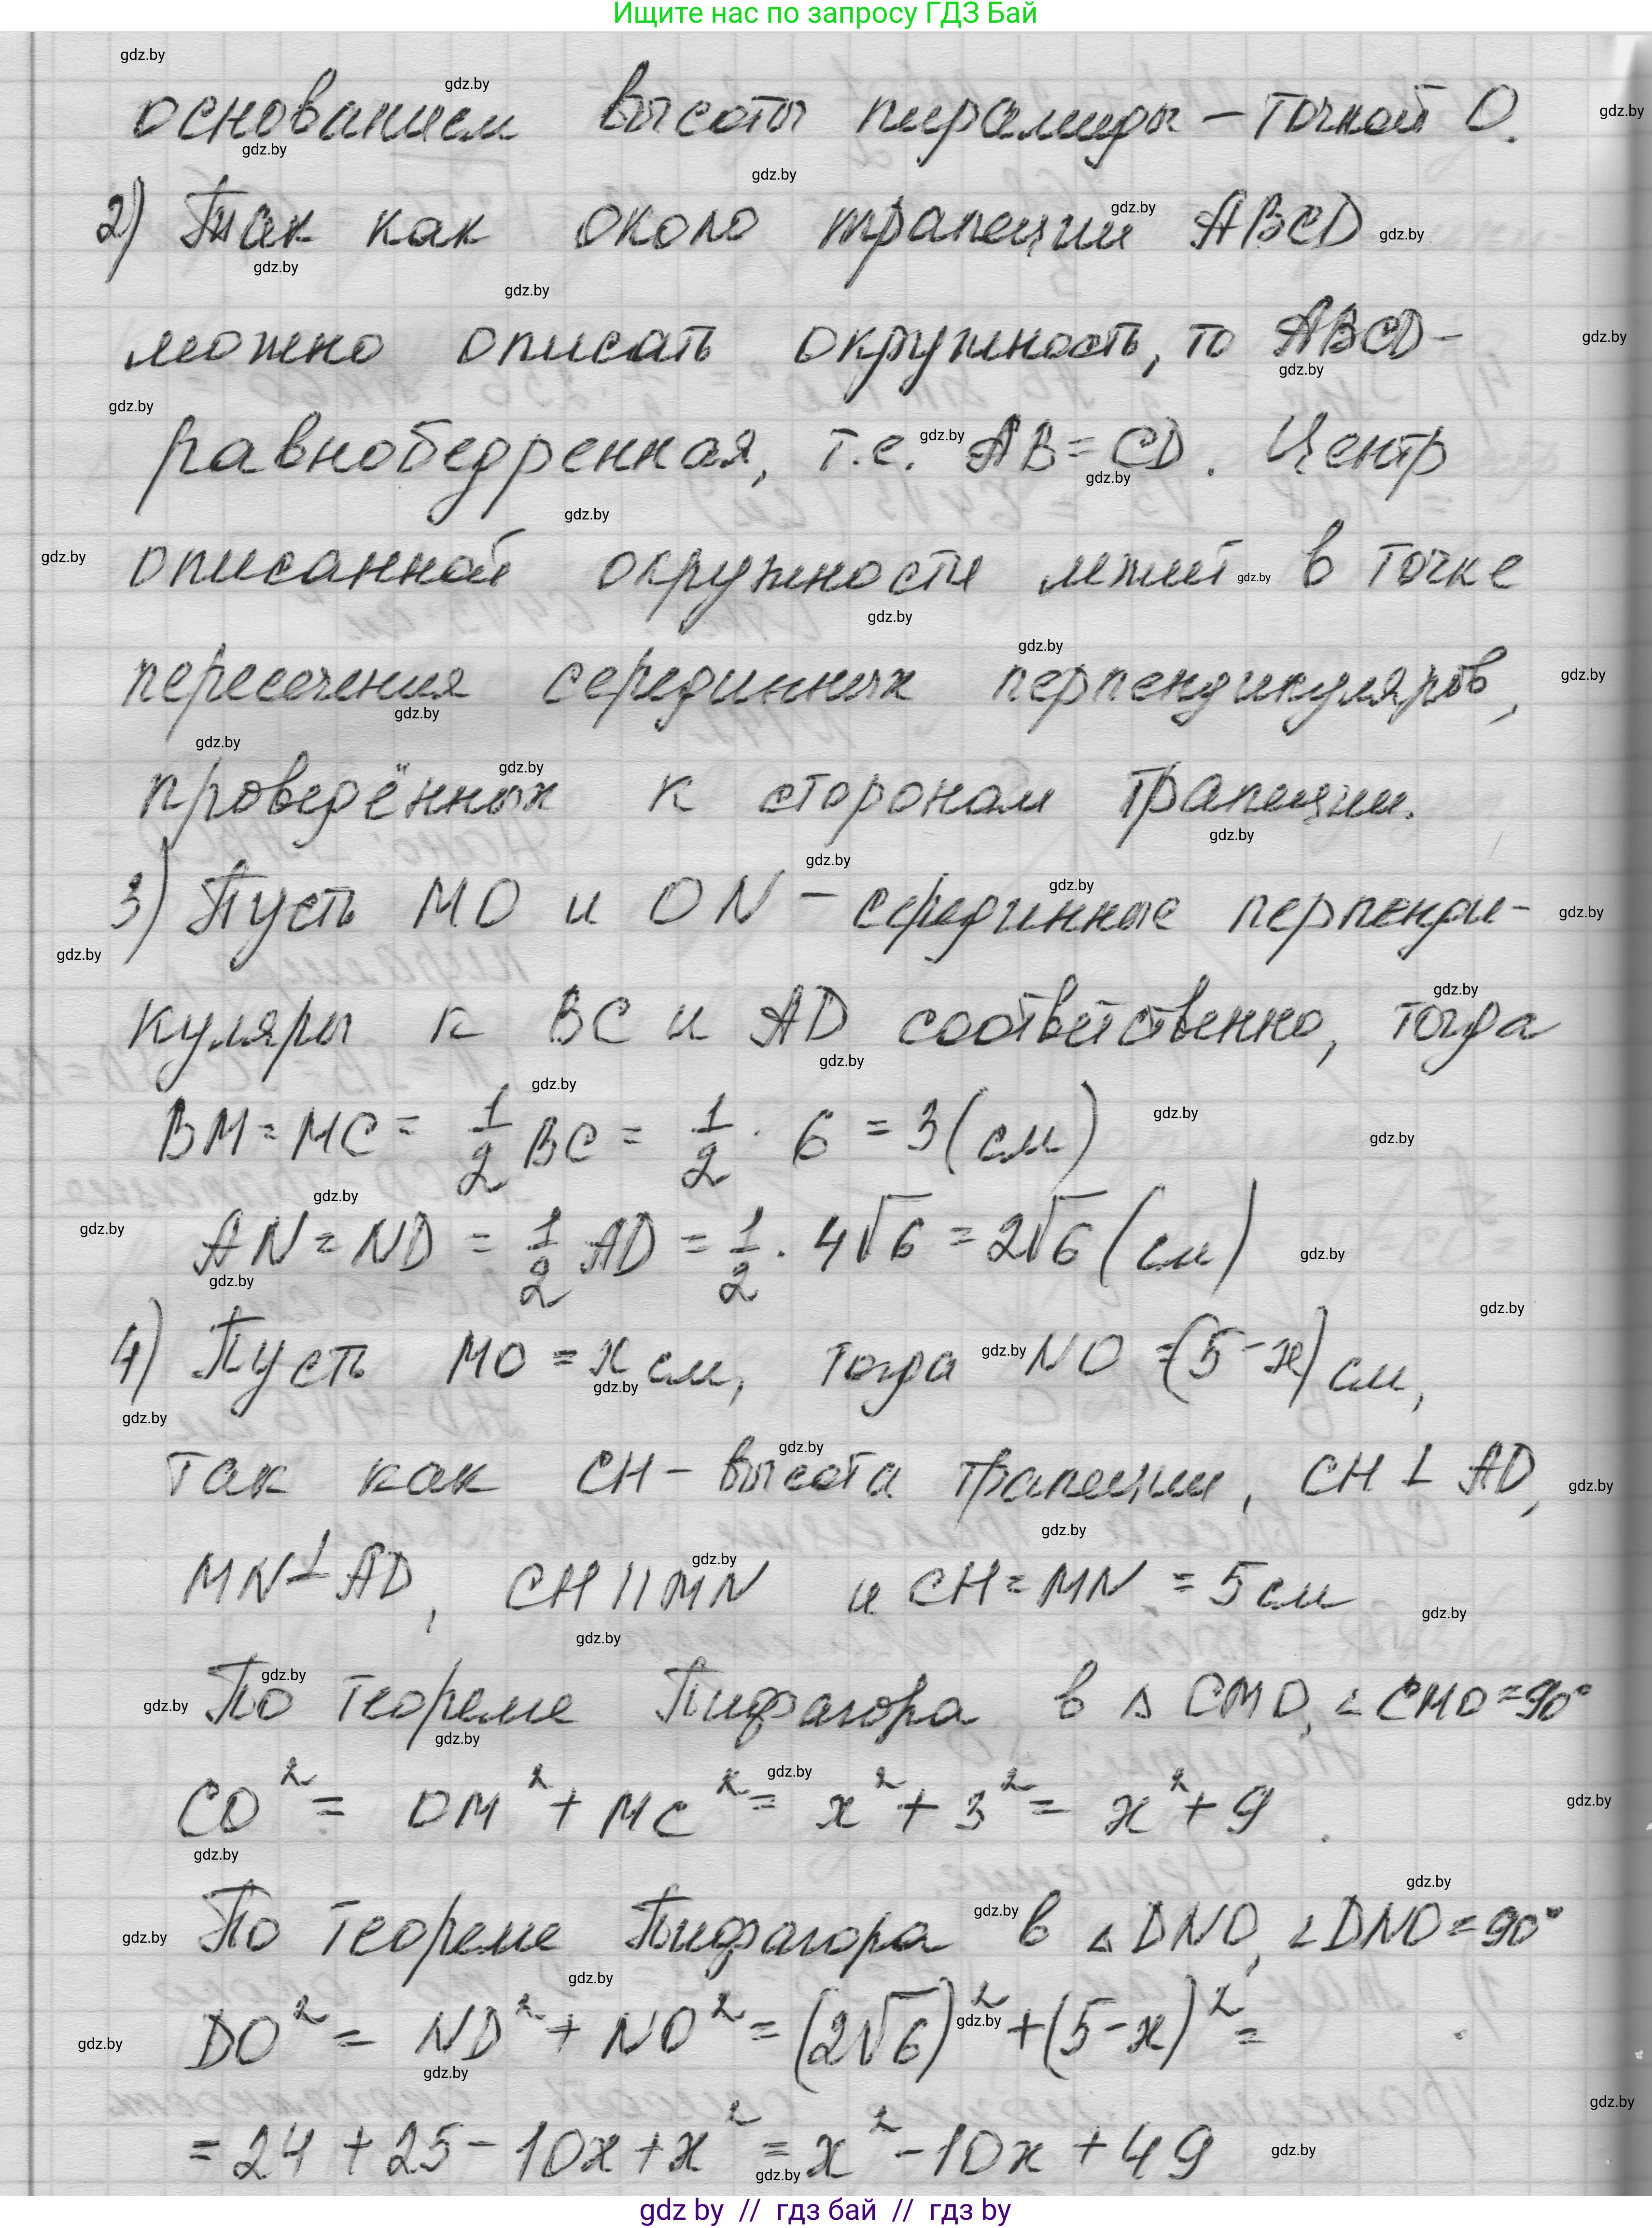 Ищите нас по запросу ГДЗ Бай
основанием высоты пирамиды - точкой О.
2) Так как около трапеции ABCD
можно описать окружность, то ABCD-
равнобедренная, т.е. AB = CD. Центр
описанной окружности лежит в точке
пересечения серединных перпендикуляров,
проведённых к сторонам трапеции.
3) Пусть MO и ON - серединные перпенди-
куляры к BC и AD соответственно, тогда
BM = MC = 1/2 BC = 1/2 · 6 = 3 (см)
AN = ND = 1/2 AD = 1/2 · 4√6 = 2√6 (см)
4) Пусть MO = x см, тогда NO = (5-x) см,
так как CH - высота трапеции, CH ⊥ AD,
MN ⊥ AD, CH || MN и CH = MN = 5 см
По теореме Пифагора в △ CMO, ∠CMO = 90°
CO² = OM² + MC² = x² + 3² = x² + 9
По теореме Пифагора в △ DNO, ∠DNO = 90°
DO² = ND² + NO² = (2√6)² + (5-x)² =
= 24 + 25 - 10x + x² = x² - 10x + 49
gdz by // гдз бай // гдз by